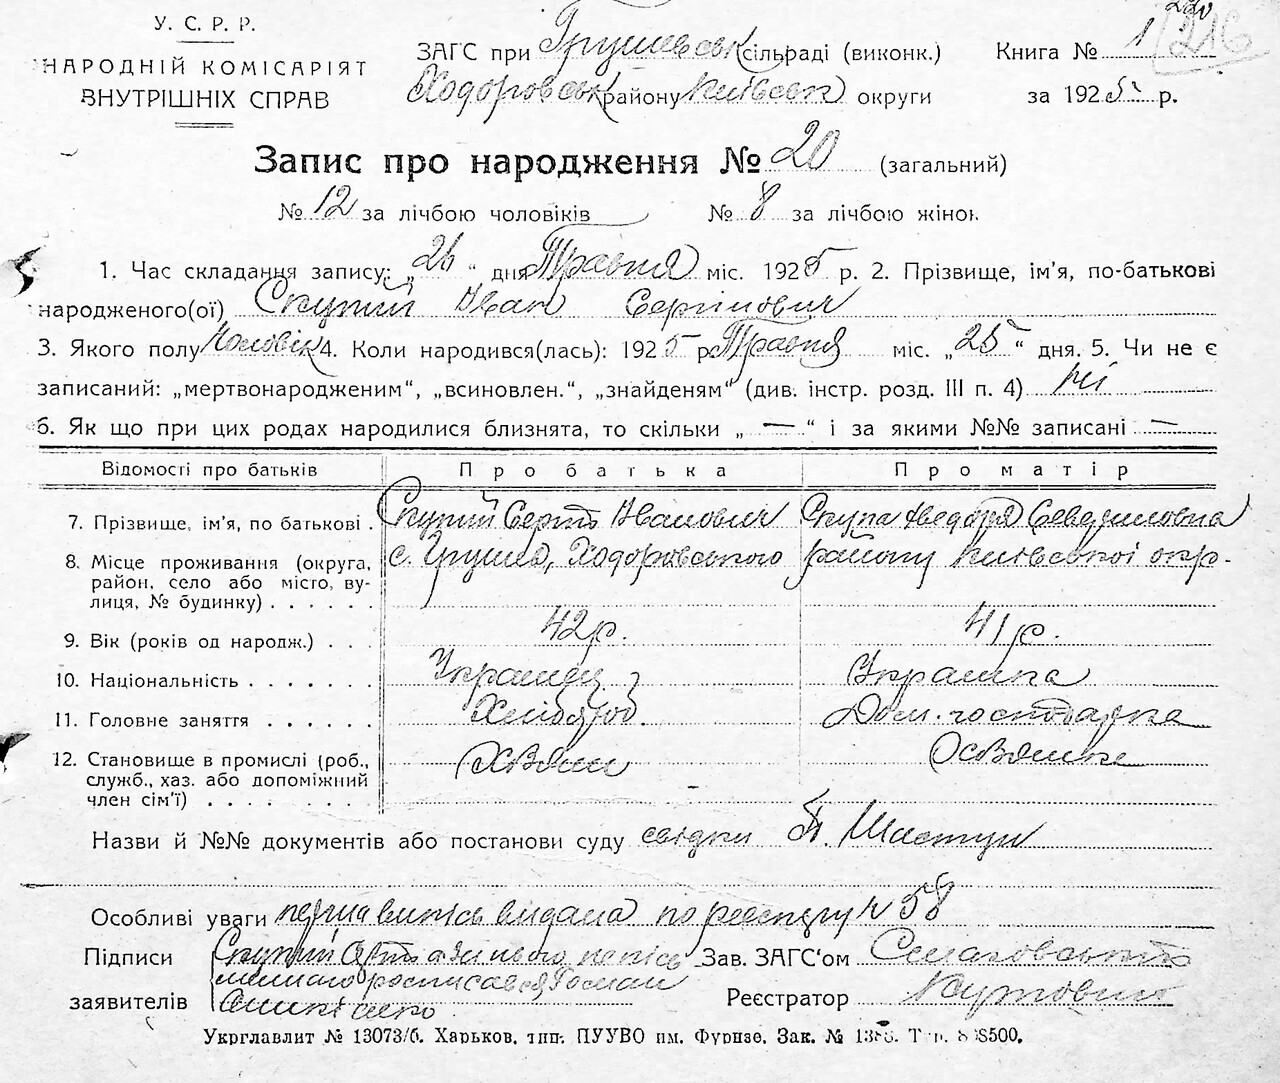 У. С. Р. Р.
НАРОДНІЙ КОМІСАРІЯТ
ВНУТРІШНІХ СПРАВ
ЗАГС при Грушевськ сільраді (виконк.)
Ходоровськ району Київськ округи
Книга № 1
216
за 1925 р.
Запис про народження № 20 (загальний)
№ 12 за лічбою чоловіків № 8 за лічбою жінок
1. Час складання запису: „26“ дня Травня міс. 1925 р. 2. Прізвище, ім'я, по-батькові
народженого(ої) Скупий Іван Сергійович
3. Якого полу Чоловік 4. Коли народився(лась): 1925 р. Травня міс. „25“ дня. 5. Чи не є
записаний: „мертвонародженим“, „всиновлен.“, „знайденям“ (див. інстр. розд. III п. 4) Ні
6. Як що при цих родах народилися близнята, то скільки „—“ і за якими №№ записані —
Відомості про батьків Про батька Про матір
7. Прізвище, ім'я, по батькові . Скупий Іванович Скупа
8. Місце проживання (округа, район, село або місто, вулиця, № будинку) . . . . . . с. Грушев, Ходорівського району Київської окр.
9. Вік (років од народж.) . . . 42 р. 41 р.
10. Національність . . . . . . . Українец Українка
11. Головне заняття . . . . . . Хлібороб. Дом. господарка
12. Становище в промислі (роб.,
служб., хаз. або допоміжний
член сім'ї) . . . . . . . .
Назви й №№ документів або постанови суду свідки П. Шастун
Особливі уваги перша випись видана по реєстру № 58
Підписи
заявителів
Скупий
росписався Роман
Зав. ЗАГС'ом
Реєстратор
Укрглавліт № 13073/б. Харьков, тип. ПУУВО им. Фрунзе. Зак. №